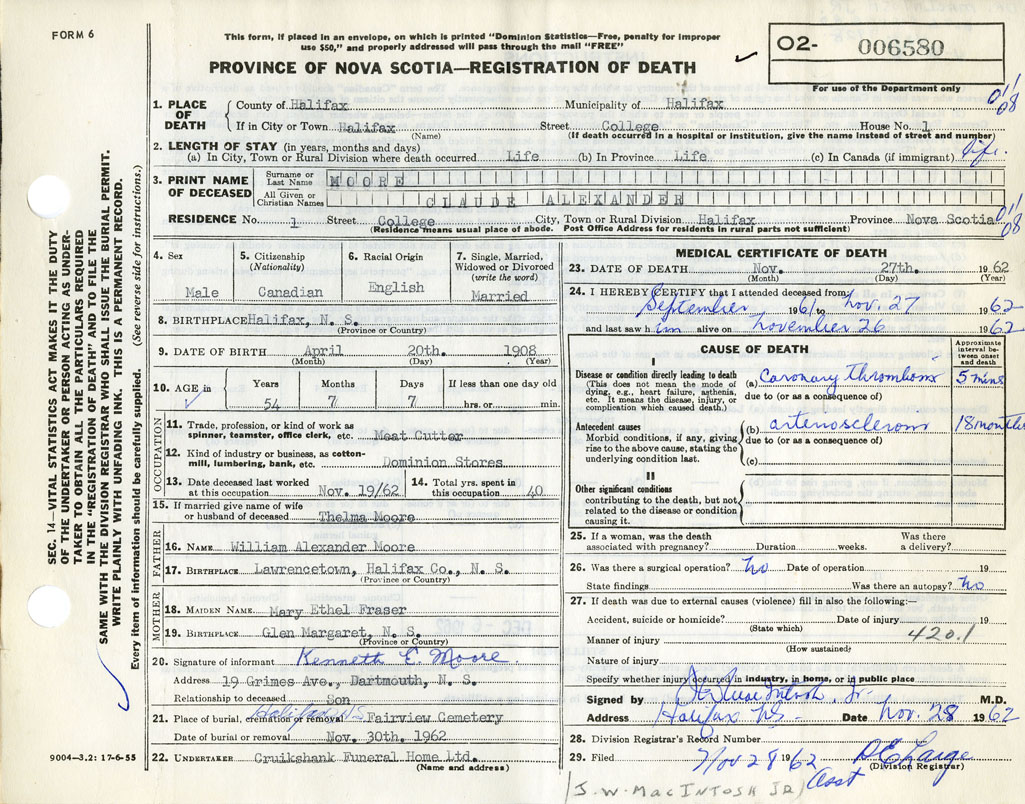 FORM 6
This form, if placed in an envelope, on which is printed "Dominion Statistics—Free, penalty for improper
use $50," and properly addressed will pass through the mail "FREE"
PROVINCE OF NOVA SCOTIA—REGISTRATION OF DEATH
02- 006580
For use of the Department only
01/08
1. PLACE OF DEATH
County of Halifax Municipality of Halifax
If in City or Town Halifax Street College House No. 1
(Name) (If death occurred in a hospital or institution, give the name instead of street and number)
2. LENGTH OF STAY (in years, months and days)
(a) In City, Town or Rural Division where death occurred Life (b) In Province Life (c) In Canada (if immigrant) life.
3. PRINT NAME OF DECEASED
Surname or Last Name MOORE
All Given or Christian Names CLAUDE ALEXANDER
RESIDENCE No. 1 Street College City, Town or Rural Division Halifax Province Nova Scotia 01/08
(Residence means usual place of abode. Post Office Address for residents in rural parts not sufficient)
4. Sex
Male
5. Citizenship (Nationality)
Canadian
6. Racial Origin
English
7. Single, Married, Widowed or Divorced (write the word)
Married
8. BIRTHPLACE Halifax, N. S.
(Province or Country)
9. DATE OF BIRTH April 20th. 1908
(Month) (Day) (Year)
10. AGE in Years Months Days If less than one day old
54 7 7 hrs. or min.
OCCUPATION
11. Trade, profession, or kind of work as
spinner, teamster, office clerk, etc. Meat Cutter
12. Kind of industry or business, as cotton-
mill, lumbering, bank, etc. Dominion Stores
13. Date deceased last worked
at this occupation Nov. 19/62
14. Total yrs. spent in
this occupation 40
15. If married give name of wife
or husband of deceased Thelma Moore
FATHER
16. NAME William Alexander Moore
17. BIRTHPLACE Lawrencetown, Halifax Co., N. S.
(Province or Country)
MOTHER
18. MAIDEN NAME Mary Ethel Fraser
19. BIRTHPLACE Glen Margaret, N. S.
(Province or Country)
20. Signature of informant Kenneth E. Moore
Address 19 Grimes Ave., Dartmouth, N. S.
Relationship to deceased Son
21. Place of burial, cremation or removal Halifax N.S. Fairview Cemetery
Date of burial or removal Nov. 30th. 1962
22. UNDERTAKER Cruikshank Funeral Home Ltd.
(Name and address)
MEDICAL CERTIFICATE OF DEATH
23. DATE OF DEATH Nov. 27th. 1962
(Month) (Day) (Year)
24. I HEREBY CERTIFY that I attended deceased from
September 1961 to Nov. 27 1962
and last saw him alive on November 26 1962
CAUSE OF DEATH
Approximate interval between onset and death
I
Disease or condition directly leading to death
(This does not mean the mode of
dying, e.g., heart failure, asthenia,
etc. It means the disease, injury, or
complication which caused death.)
(a) Coronary Thrombosis 5 mins
due to (or as a consequence of)
Antecedent causes
Morbid conditions, if any, giving
rise to the above cause, stating the
underlying condition last.
(b) arteriosclerosis 18 months
due to (or as a consequence of)
(c)
II
Other significant conditions
contributing to the death, but not
related to the disease or condition
causing it.
25. If a woman, was the death Was there
associated with pregnancy? Duration weeks. a delivery?
26. Was there a surgical operation? no Date of operation 19
State findings Was there an autopsy? no
27. If death was due to external causes (violence) fill in also the following:—
Accident, suicide or homicide? Date of injury 19
(State which)
Manner of injury 420.1
(How sustained)
Nature of injury
Specify whether injury occurred in industry, in home, or in public place
Signed by J W MacIntosh, Jr. M.D.
Address Halifax NS Date Nov. 28 1962
28. Division Registrar's Record Number
29. Filed Nov 28 1962
Asst
(Division Registrar)
(J.W. MACINTOSH JR)
SEC. 14—VITAL STATISTICS ACT MAKES IT THE DUTY
OF THE UNDERTAKER OR PERSON ACTING AS UNDER-
TAKER TO OBTAIN ALL THE PARTICULARS REQUIRED
IN THE "REGISTRATION OF DEATH" AND TO FILE THE
SAME WITH THE DIVISION REGISTRAR WHO SHALL ISSUE THE BURIAL PERMIT.
WRITE PLAINLY WITH UNFADING INK. THIS IS A PERMANENT RECORD.
Every item of information should be carefully supplied. (See reverse side for instructions.)
9004—3.2: 17-6-55